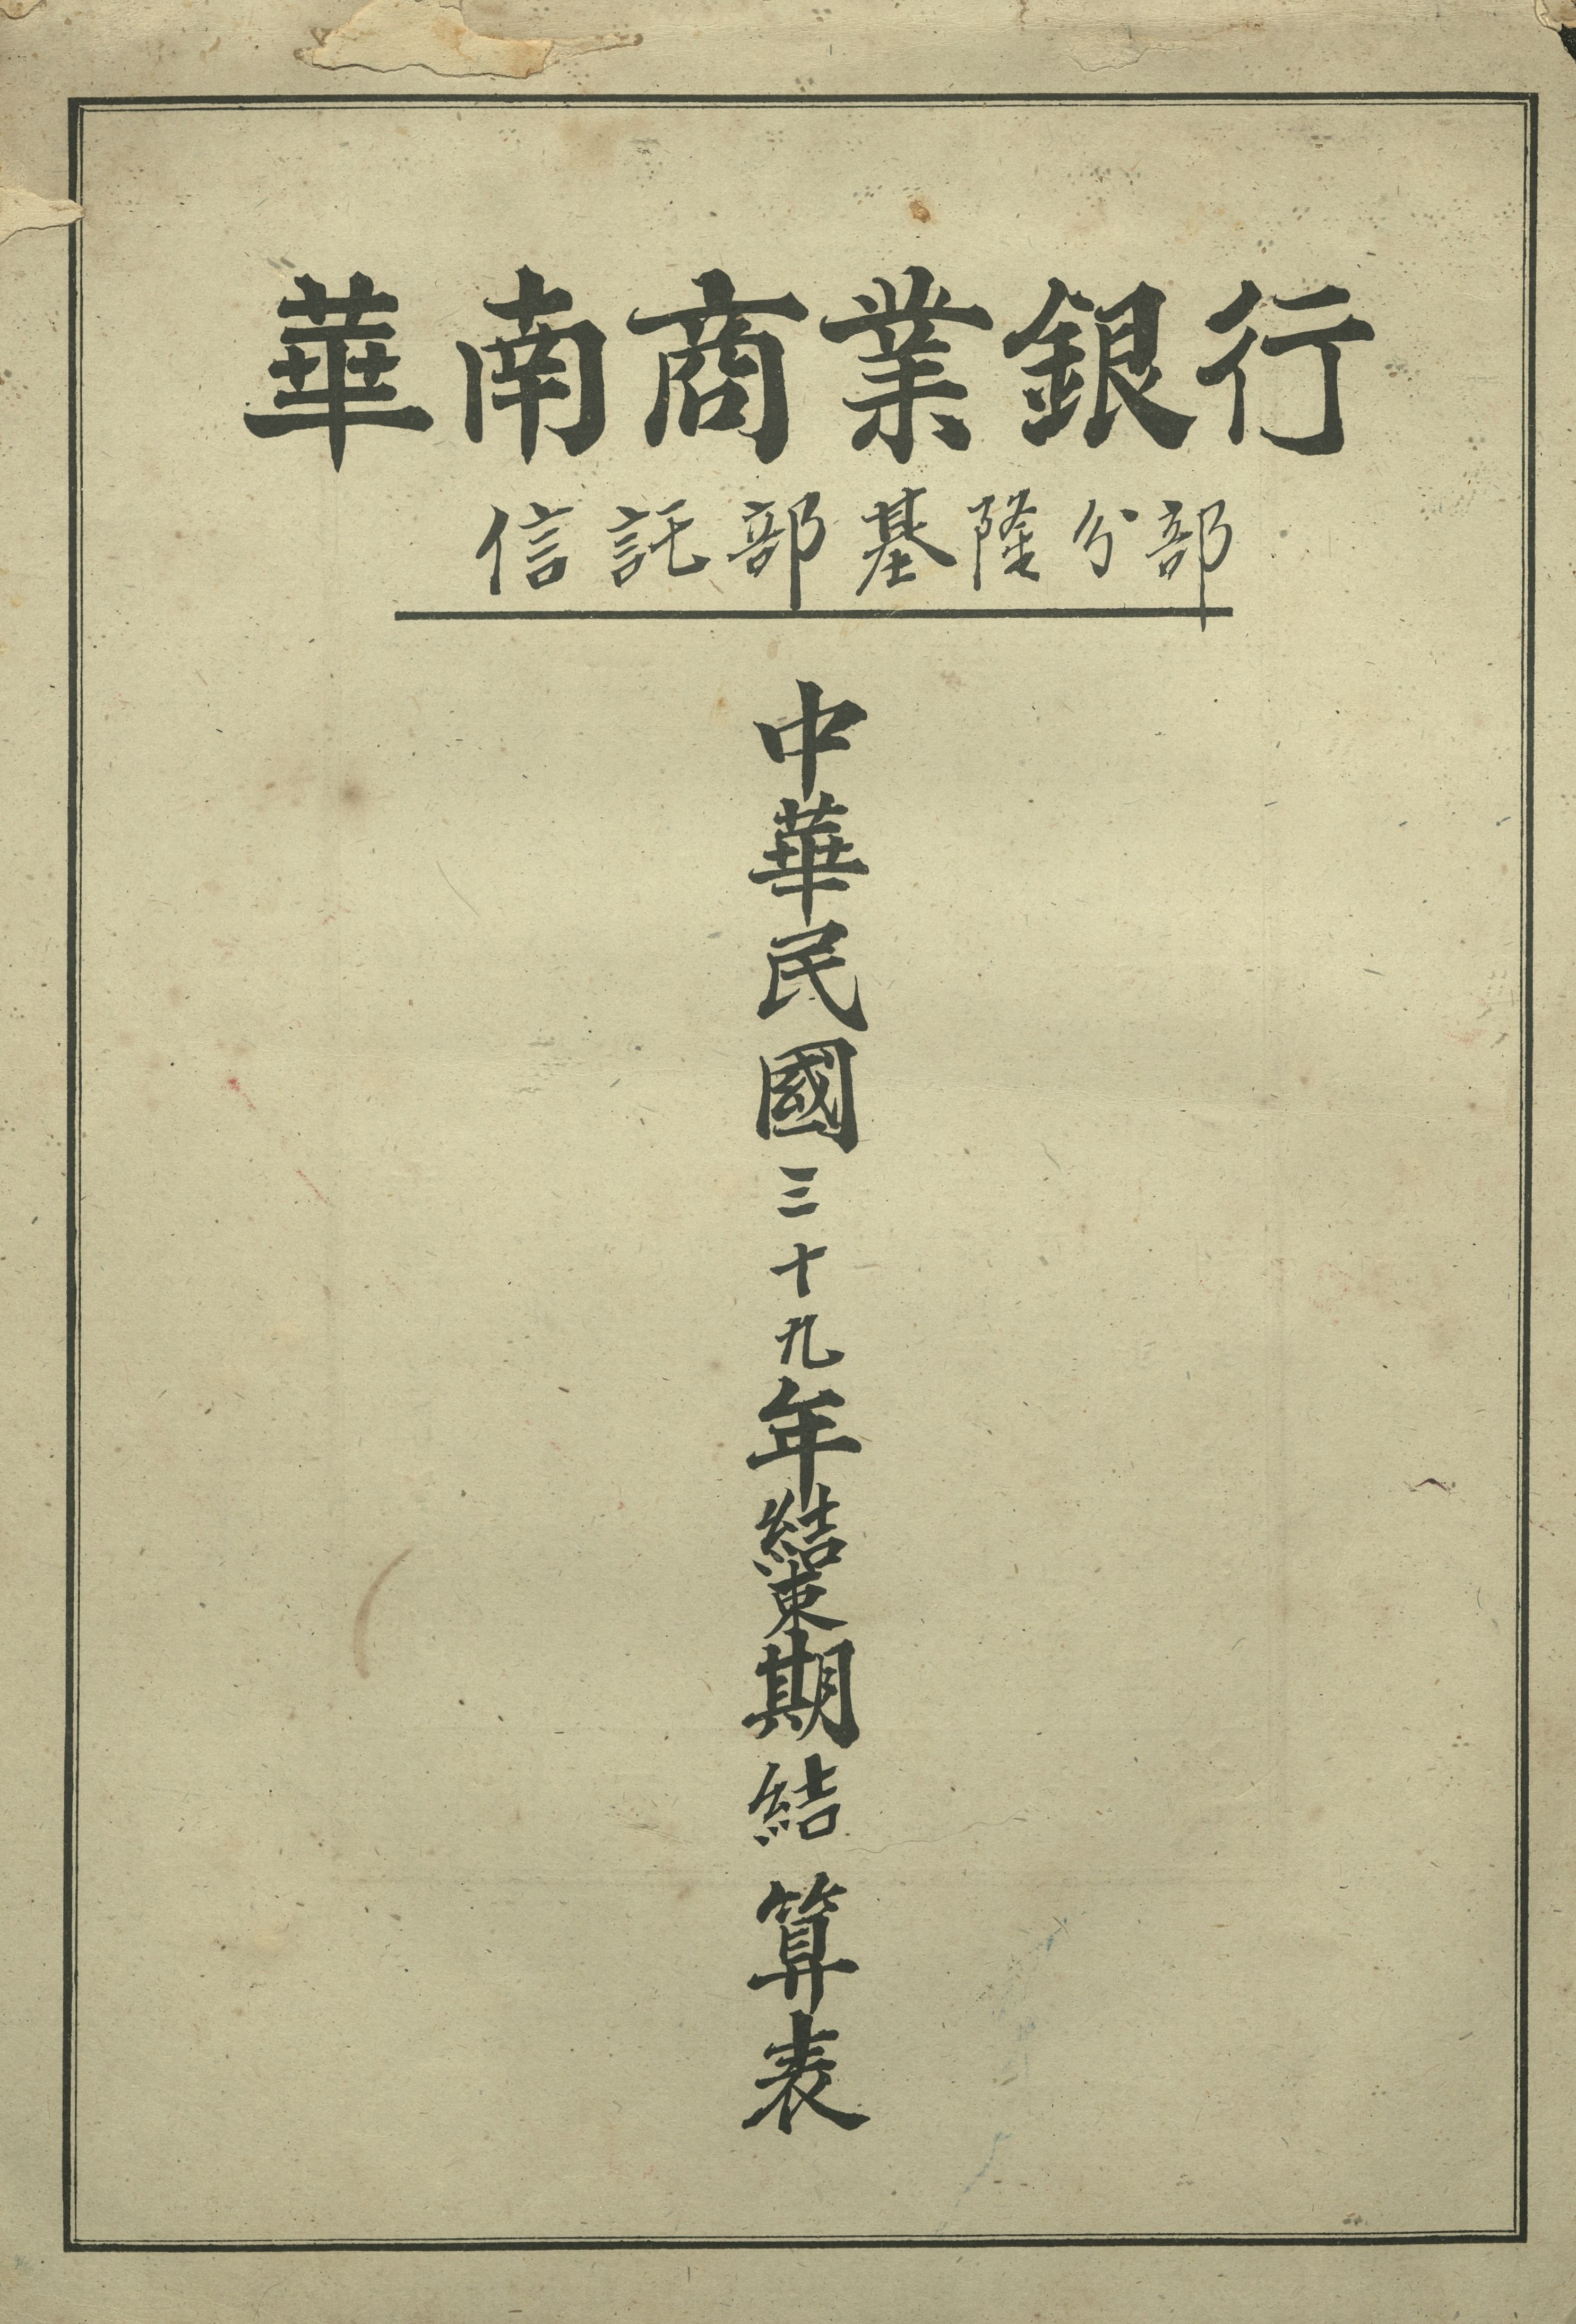 華南商業銀行
信託部基隆分部
中華民國三十九年結束期結算表